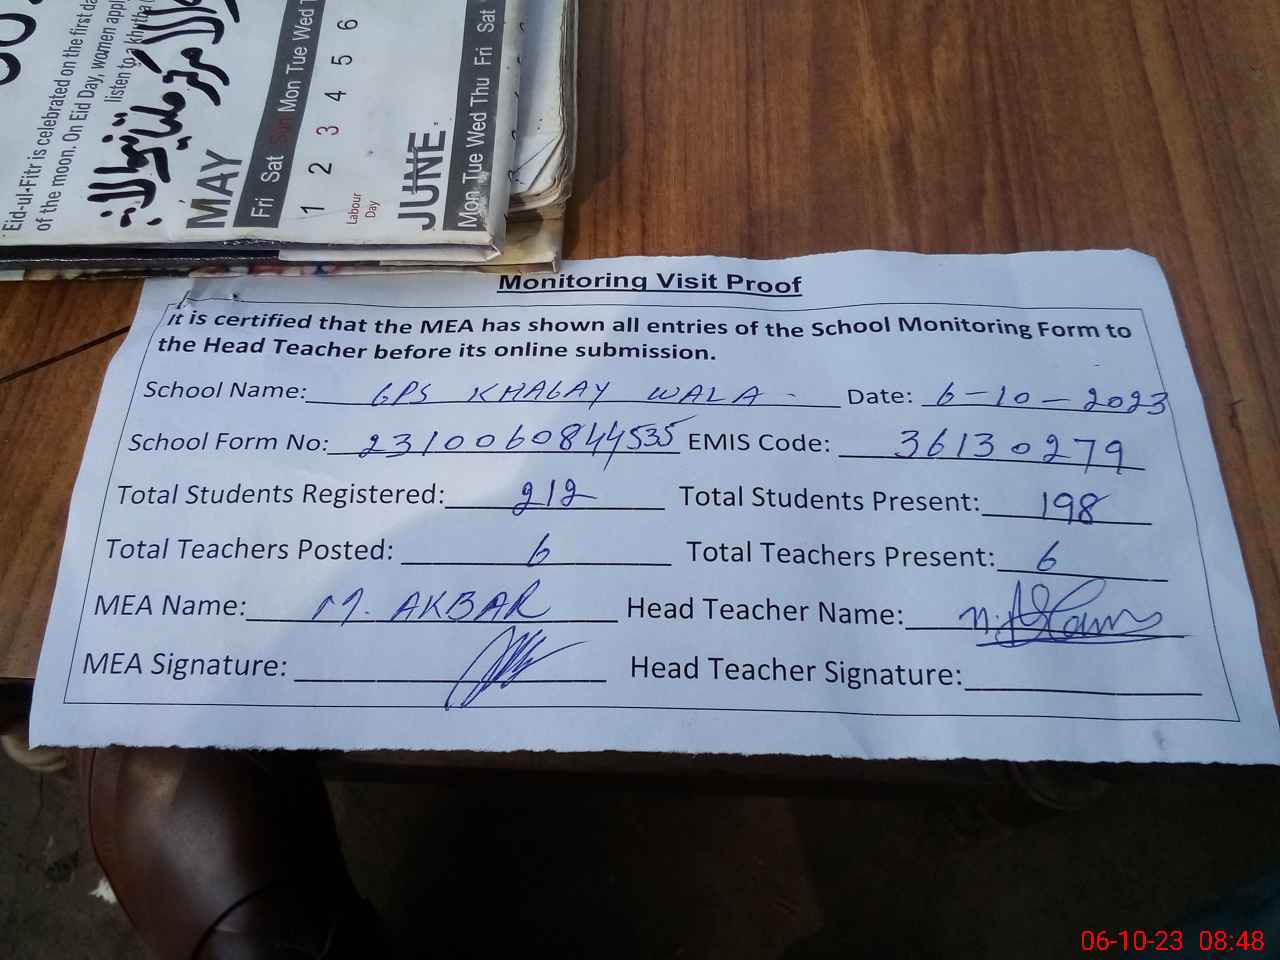 Eid-ul-Fitr is celebrated on the first da
of the moon. On Eid Day, women appl
listen to a khutba
MAY
Fri Sat Sun Mon Tue Wed T
1 2 3 4 5 6
Labour
Day
JUNE
Mon Tue Wed Thu Fri Sat
Monitoring Visit Proof
It is certified that the MEA has shown all entries of the School Monitoring Form to
the Head Teacher before its online submission.
School Name: GPS KHAGAY WALA - Date: 6-10-2023
School Form No: 2310060844535 EMIS Code: 36130279
Total Students Registered: 212 Total Students Present: 198
Total Teachers Posted: 6 Total Teachers Present: 6
MEA Name: M. AKBAR Head Teacher Name: M. Aslam
MEA Signature: Head Teacher Signature:
06-10-23 08:48